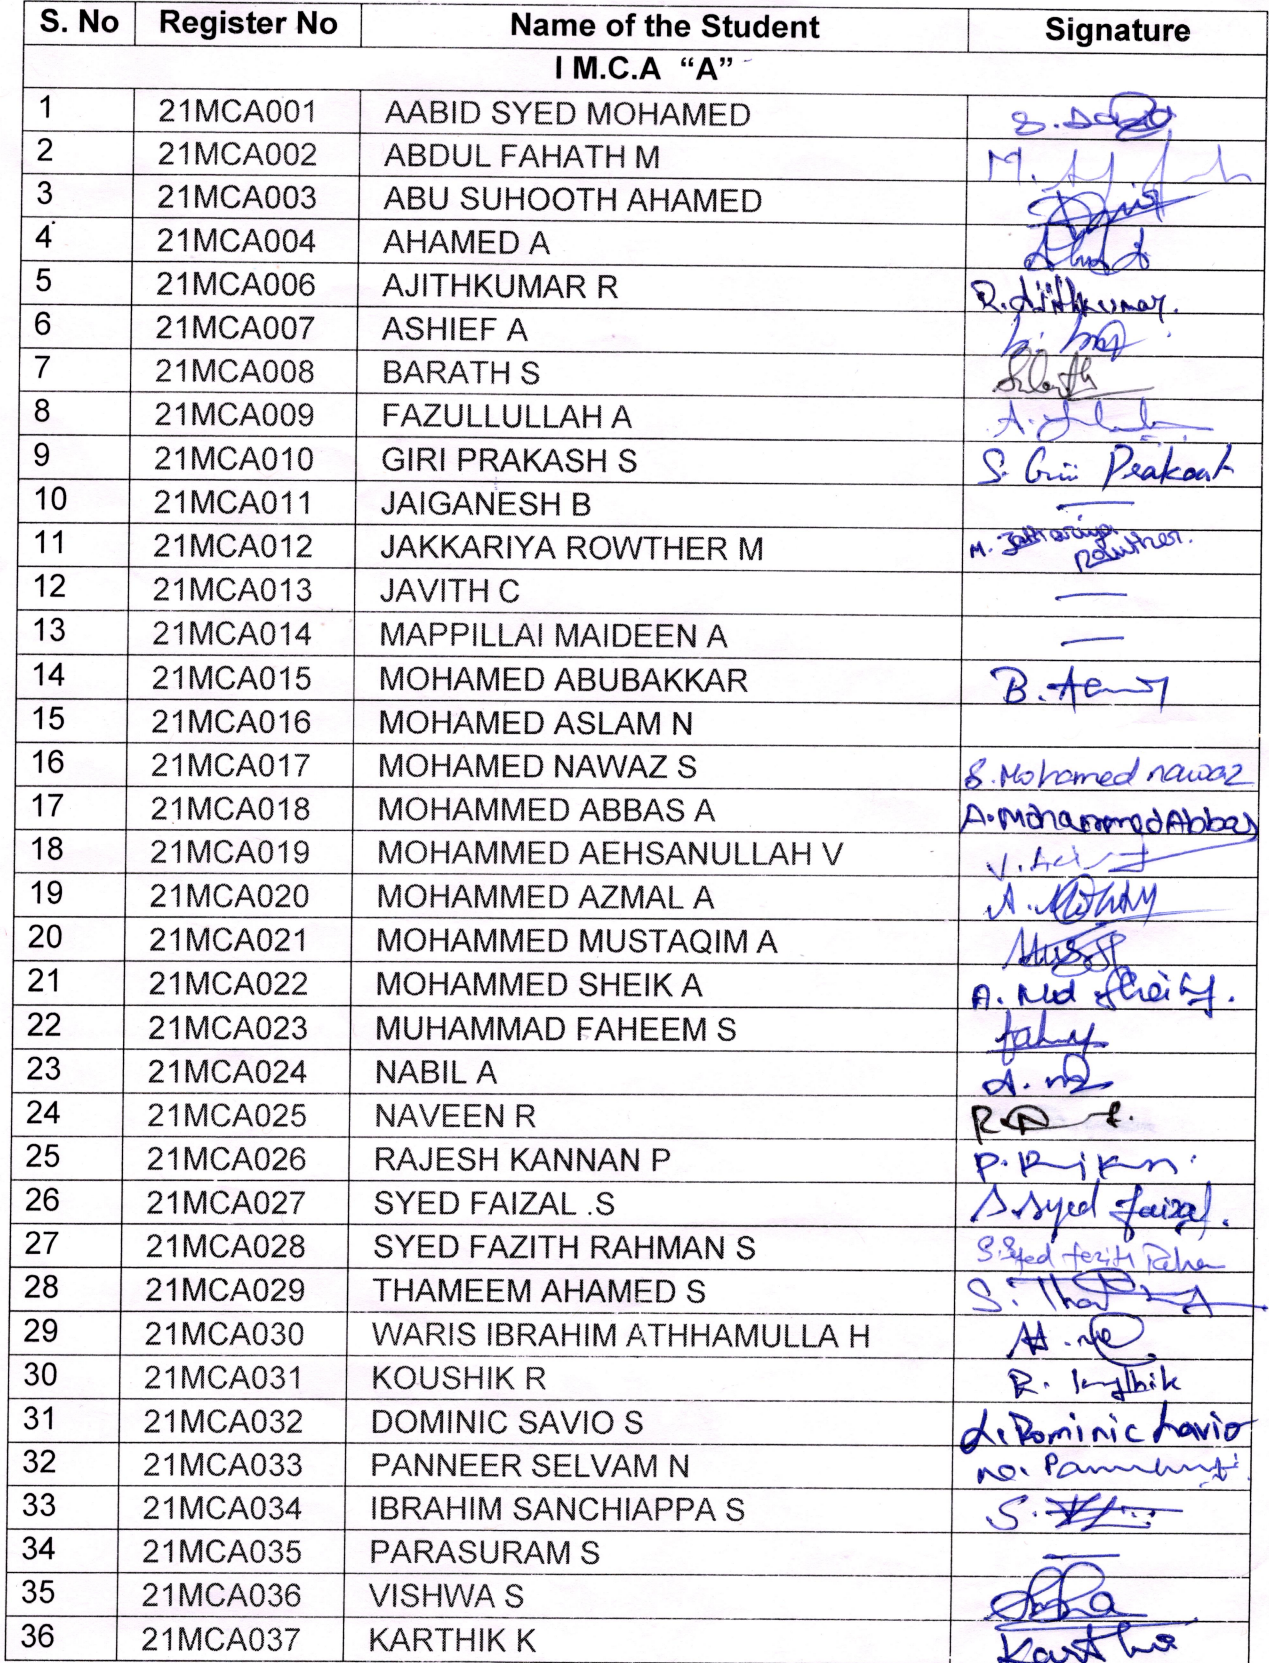 S. No Register No Name of the Student Signature
I M.C.A "A"
1 21MCA001 AABID SYED MOHAMED
2 21MCA002 ABDUL FAHATH M
3 21MCA003 ABU SUHOOTH AHAMED
4 21MCA004 AHAMED A
5 21MCA006 AJITHKUMAR R R. Ajithkumar.
6 21MCA007 ASHIEF A
7 21MCA008 BARATH S
8 21MCA009 FAZULLULLAH A
9 21MCA010 GIRI PRAKASH S S. Giri Prakash
10 21MCA011 JAIGANESH B —
11 21MCA012 JAKKARIYA ROWTHER M M. Jakkariya Rowther.
12 21MCA013 JAVITH C —
13 21MCA014 MAPPILLAI MAIDEEN A —
14 21MCA015 MOHAMED ABUBAKKAR B.
15 21MCA016 MOHAMED ASLAM N
16 21MCA017 MOHAMED NAWAZ S S. Mohamed nawaz
17 21MCA018 MOHAMMED ABBAS A A. Mohammed Abbas
18 21MCA019 MOHAMMED AEHSANULLAH V V.
19 21MCA020 MOHAMMED AZMAL A A.
20 21MCA021 MOHAMMED MUSTAQIM A
21 21MCA022 MOHAMMED SHEIK A A. Md Sheik.
22 21MCA023 MUHAMMAD FAHEEM S
23 21MCA024 NABIL A A.
24 21MCA025 NAVEEN R R.
25 21MCA026 RAJESH KANNAN P P.
26 21MCA027 SYED FAIZAL .S S. Syed faizal.
27 21MCA028 SYED FAZITH RAHMAN S S. Syed
28 21MCA029 THAMEEM AHAMED S S.
29 21MCA030 WARIS IBRAHIM ATHHAMULLA H H.
30 21MCA031 KOUSHIK R R.
31 21MCA032 DOMINIC SAVIO S S. Dominic Savio
32 21MCA033 PANNEER SELVAM N
33 21MCA034 IBRAHIM SANCHIAPPA S S.
34 21MCA035 PARASURAM S —
35 21MCA036 VISHWA S
36 21MCA037 KARTHIK K